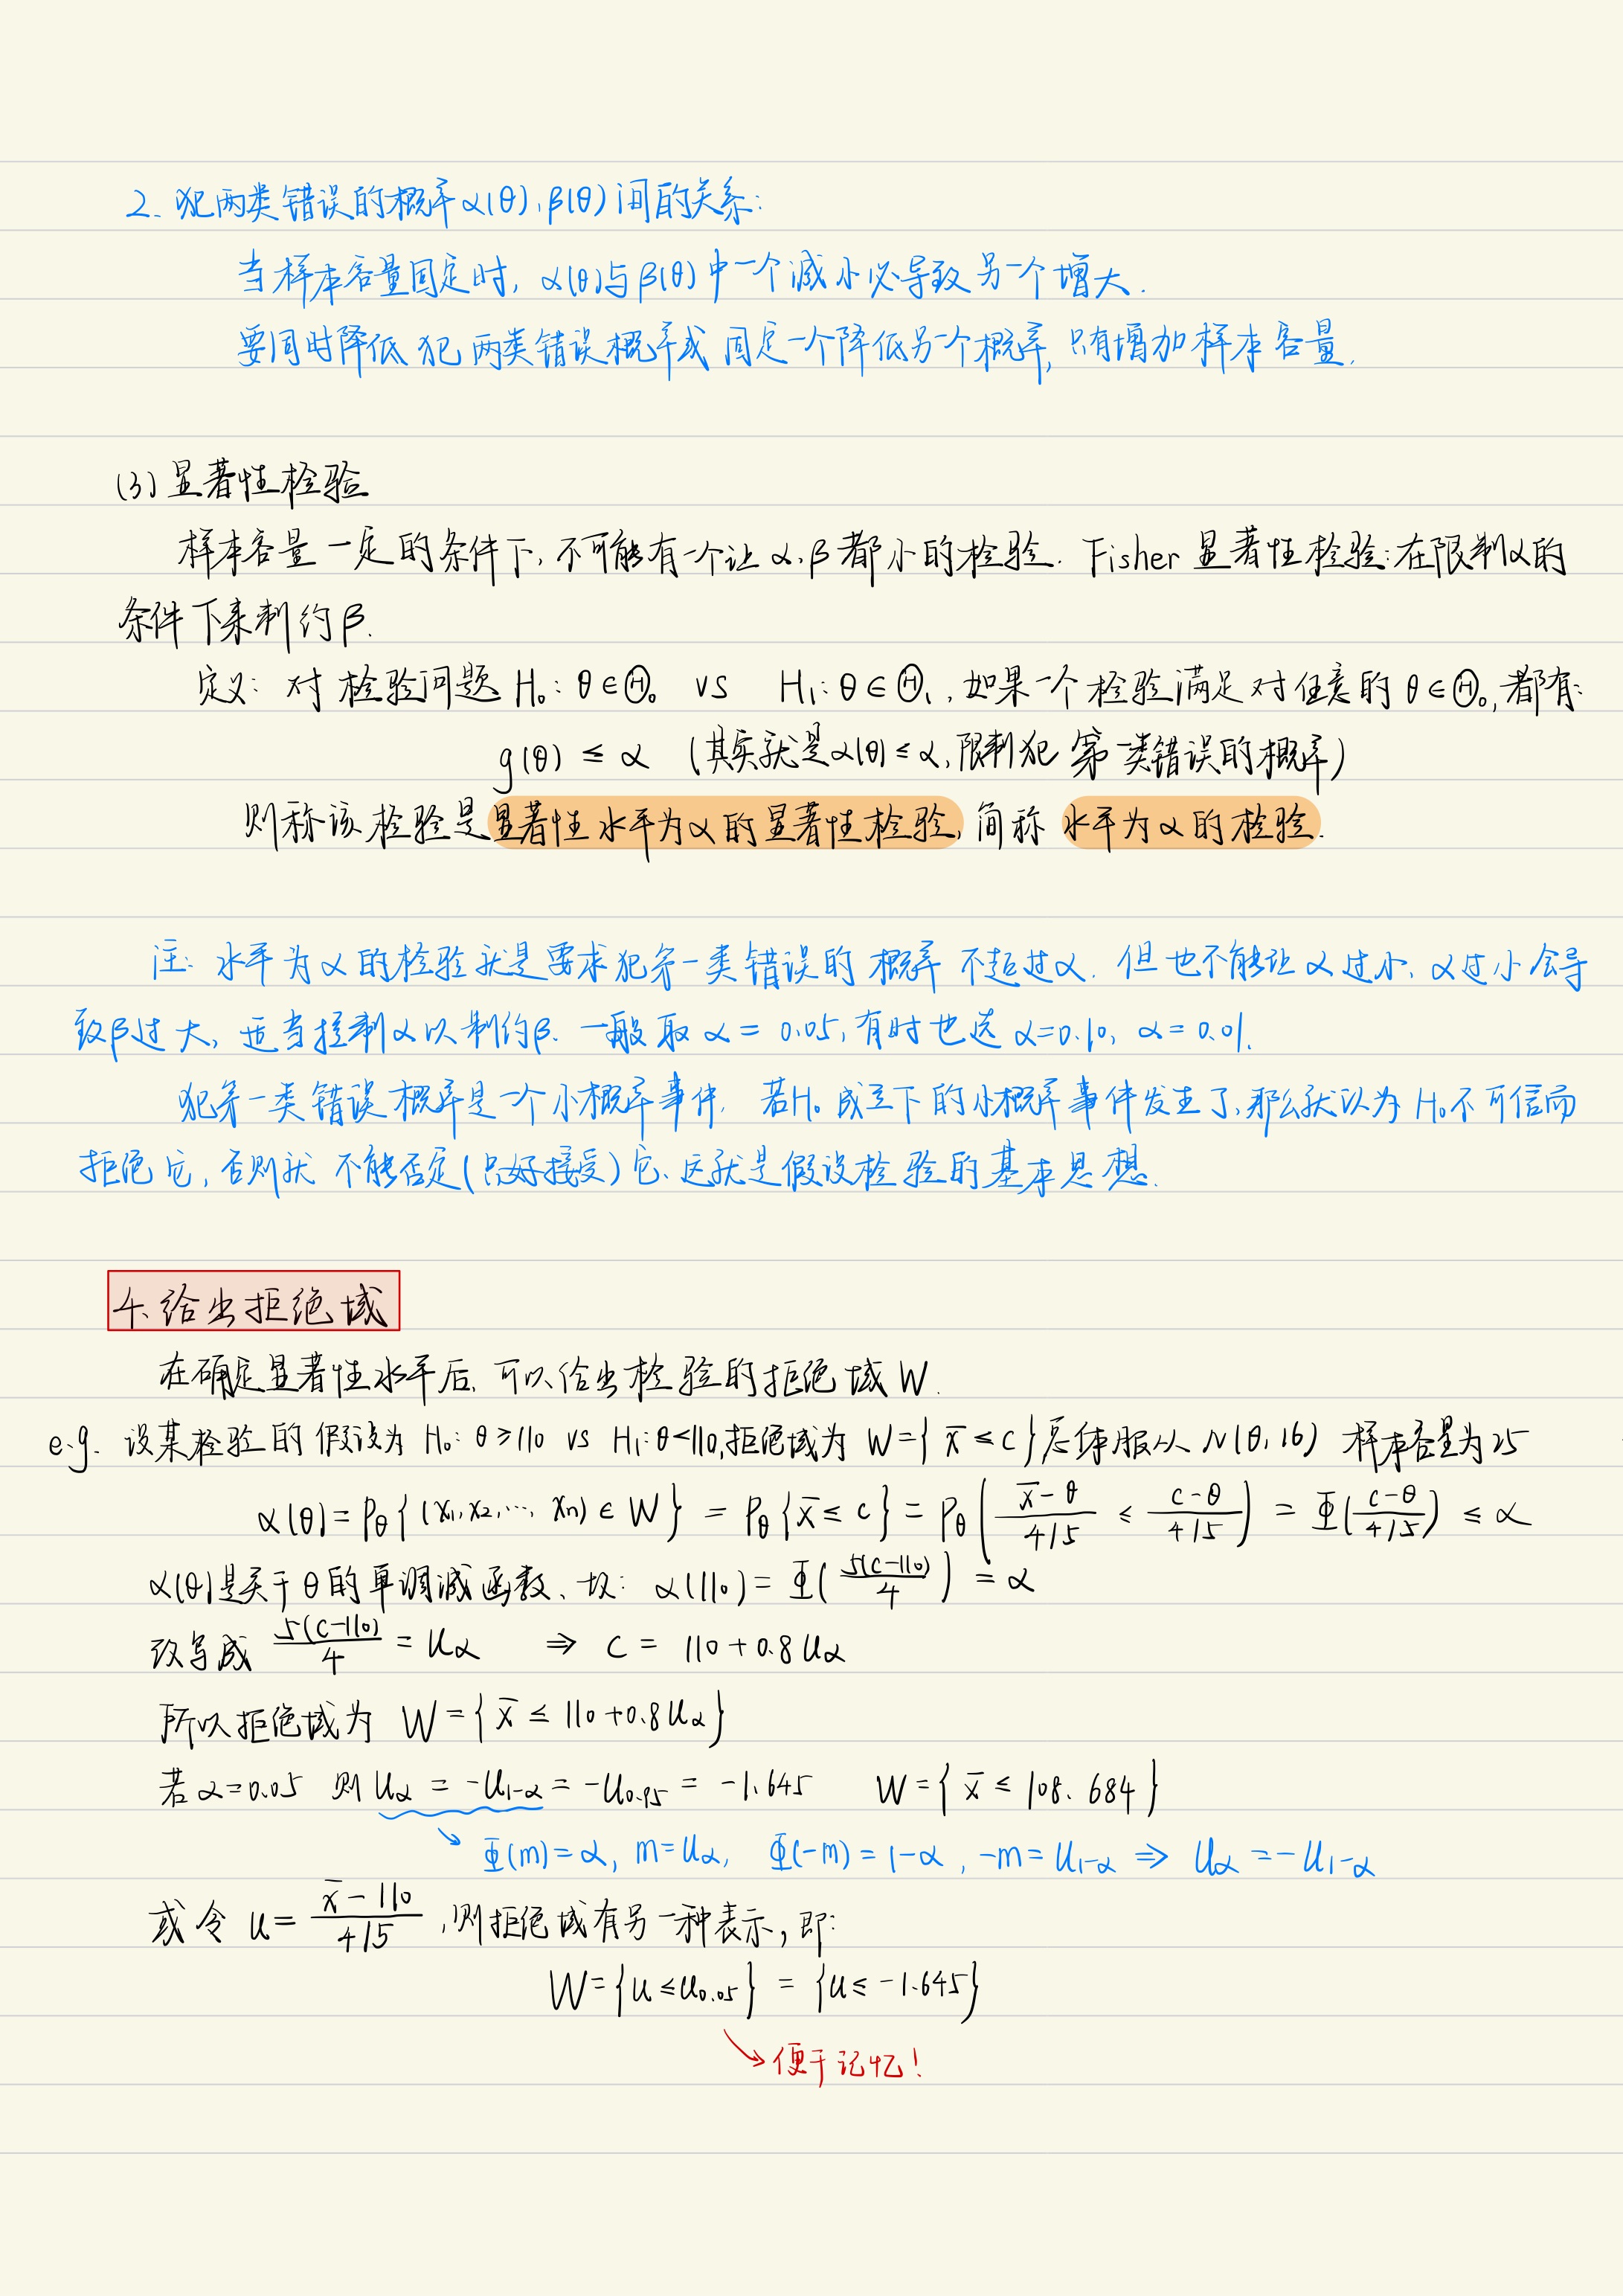 2、犯两类错误的概率α(θ),β(θ)间的关系:
当样本容量固定时, α(θ)与β(θ)中一个减小必导致另一个增大.
要同时降低犯两类错误概率或固定一个降低另一个概率, 只有增加样本容量.
(3) 显著性检验
样本容量一定的条件下, 不可能有一个让α、β都小的检验. Fisher显著性检验:在限制α的
条件下来制约β.
定义: 对检验问题 H₀: θ∈Θ₀ vs H₁: θ∈Θ₁, 如果一个检验满足对任意的θ∈Θ₀, 都有:
g(θ) ≤ α (其实就是α(θ)≤α, 限制犯第一类错误的概率)
则称该检验是显著性水平为α的显著性检验, 简称水平为α的检验.
注: 水平为α的检验就是要求犯第一类错误的概率不超过α. 但也不能让α过小, α过小会导
致β过大, 适当控制α以制约β. 一般取α=0.05, 有时也选α=0.10, α=0.01.
犯第一类错误概率是一个小概率事件. 若H₀成立下的小概率事件发生了,那么就认为H₀不可信而
拒绝它, 否则就不能否定(只好接受)它、这就是假设检验的基本思想.
4、给出拒绝域
在确定显著性水平后, 可以给出检验的拒绝域W.
e.g. 设某检验的假设为 H₀: θ≥110 vs H₁: θ<110, 拒绝域为 W={x̄≤c} 总体服从N(θ,16) 样本容量为25
α(θ)=P_θ{(x₁,x₂,⋯,xₙ)∈W} = P_θ{x̄≤c} = P_θ((x̄-θ)/(4/5) ≤ (c-θ)/(4/5)) = Φ((c-θ)/(4/5)) ≤ α
α(θ)是关于θ的单调减函数、故: α(110)=Φ(5(c-110)/4)=α
改写成 5(c-110)/4 = u_α ⇒ c = 110+0.8u_α
所以拒绝域为 W={x̄≤110+0.8u_α}
若α=0.05 则 u_α = -u_{1-α} = -u_{0.95} = -1.645 W={x̄≤108.684}
Φ(m)=α, m=u_α, Φ(-m)=1-α, -m=u_{1-α} ⇒ u_α=-u_{1-α}
或令 u=(x̄-110)/(4/5), 则拒绝域有另一种表示, 即:
W={u≤u_{0.05}} = {u≤-1.645}
便于记忆!